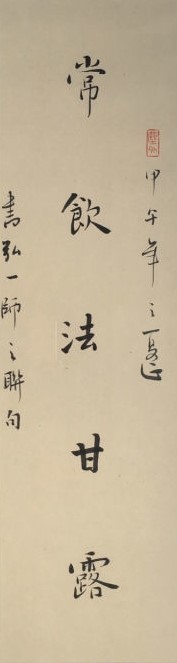 甲午年之夏
常飲法甘露
書弘一師之聯句